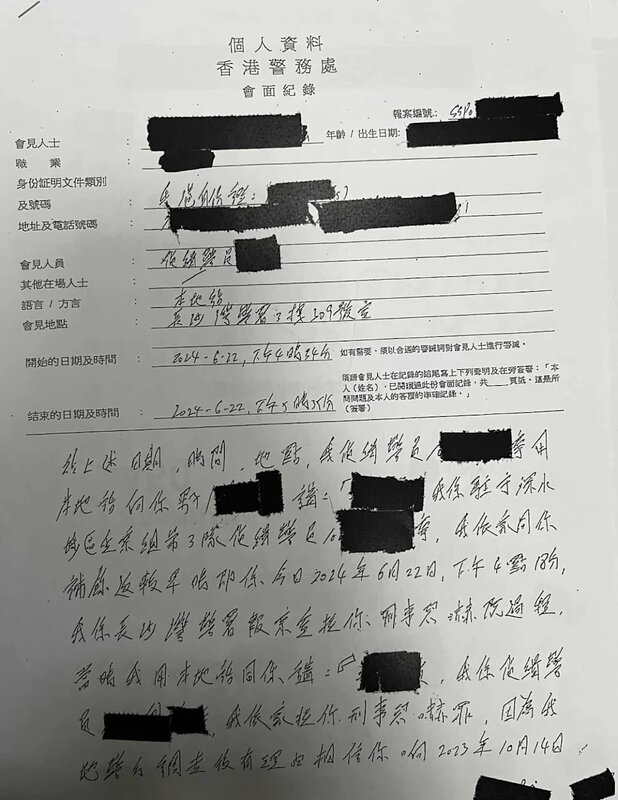 個人資料
香港警務處
會面紀錄
報案編號: SSPO
會見人士 : 年齡 / 出生日期:
職 業 :
身份証明文件類別
及號碼 : 香港身份證:
地址及電話號碼 :
會見人員 : 偵緝警員
其他在場人士 :
語言 / 方言 : 本地話
會見地點 : 長沙灣警署3樓309號室
開始的日期及時間 : 2024-6-22, 下午4時54分 如有需要,須以合適的警誡詞對會見人士進行警誡。
須請會見人士在記錄的結尾寫上下列聲明及在旁簽署:「本
人(姓名),已閱讀過此份會面記錄,共 頁紙,這是所
問問題及本人的答覆的準確記錄。」
結束的日期及時間 : 2024-6-22, 下午5時35分 (簽署)
於上述日期,時間,地點,我偵緝警員 用
本地話向你 講:「 我係駐守深水
埗區 組第3隊偵緝警員 ,我依家同你
補錄返較早時即係今日2024年6月22日,下午4點18分,
我係長沙灣警署報案室拉你,刑事恐嚇既過程,
當時我用本地話同你講:「 ,我係偵緝警
員 ,我依家拉你刑事恐嚇罪,因為我
地警方調查後有理由相信你响2023年10月14日